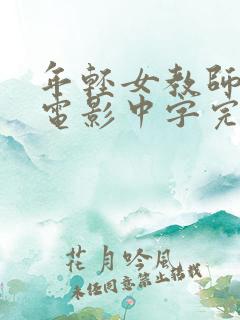 年輕女教師
電影中字完
花月吟風
未经同意禁止转载